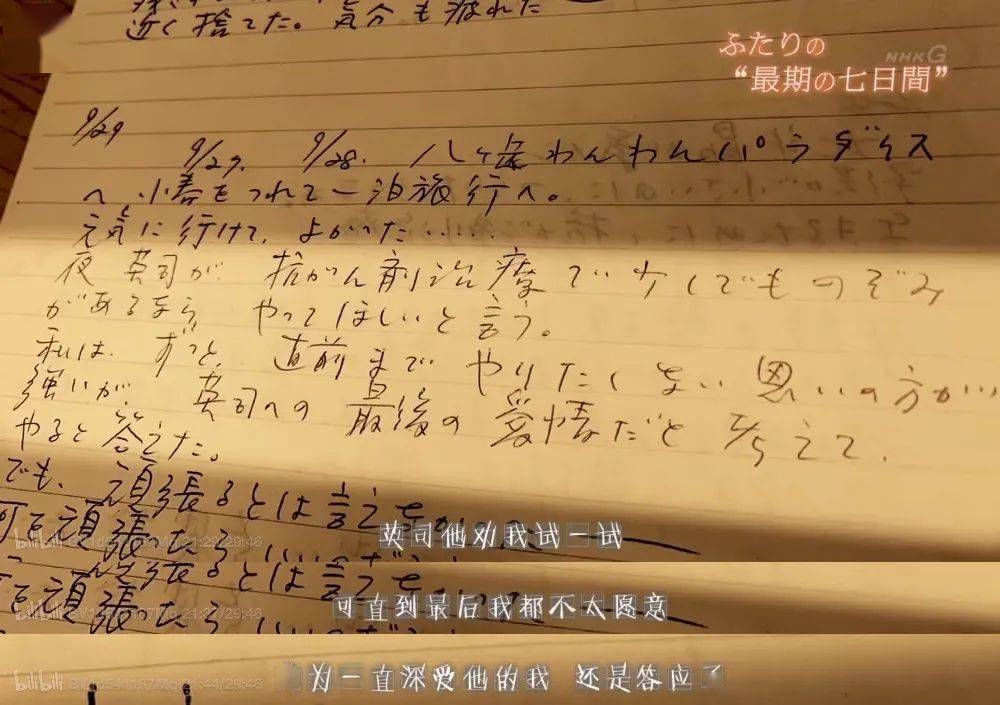 近く捨てた。気分も疲れた
ふたりの
NHK G
“最期の七日間”
9/29
9/27. 9/28. 八ヶ岳わんわんパラダイス
へ小春をつれて一泊旅行へ。
元気に行けて、よかった……
夜 英司が 抗がん剤治療で少しでものぞみ
があるなら やってほしいと言う。
私は、ずっと、直前まで やりたくない思いの方が
強いが、英司への最後の愛情だと考えて、
やると答えた。
でも、頑張るとは言え
何を頑張ったら
bilibili 21:28/29:46
英司他劝我试一试
頑張るとは言え
を頑張ったら
bilibili /29:46
可直到最后我都不太愿意
bilibili 21:44/29:46
为一直深爱他的我 还是答应了